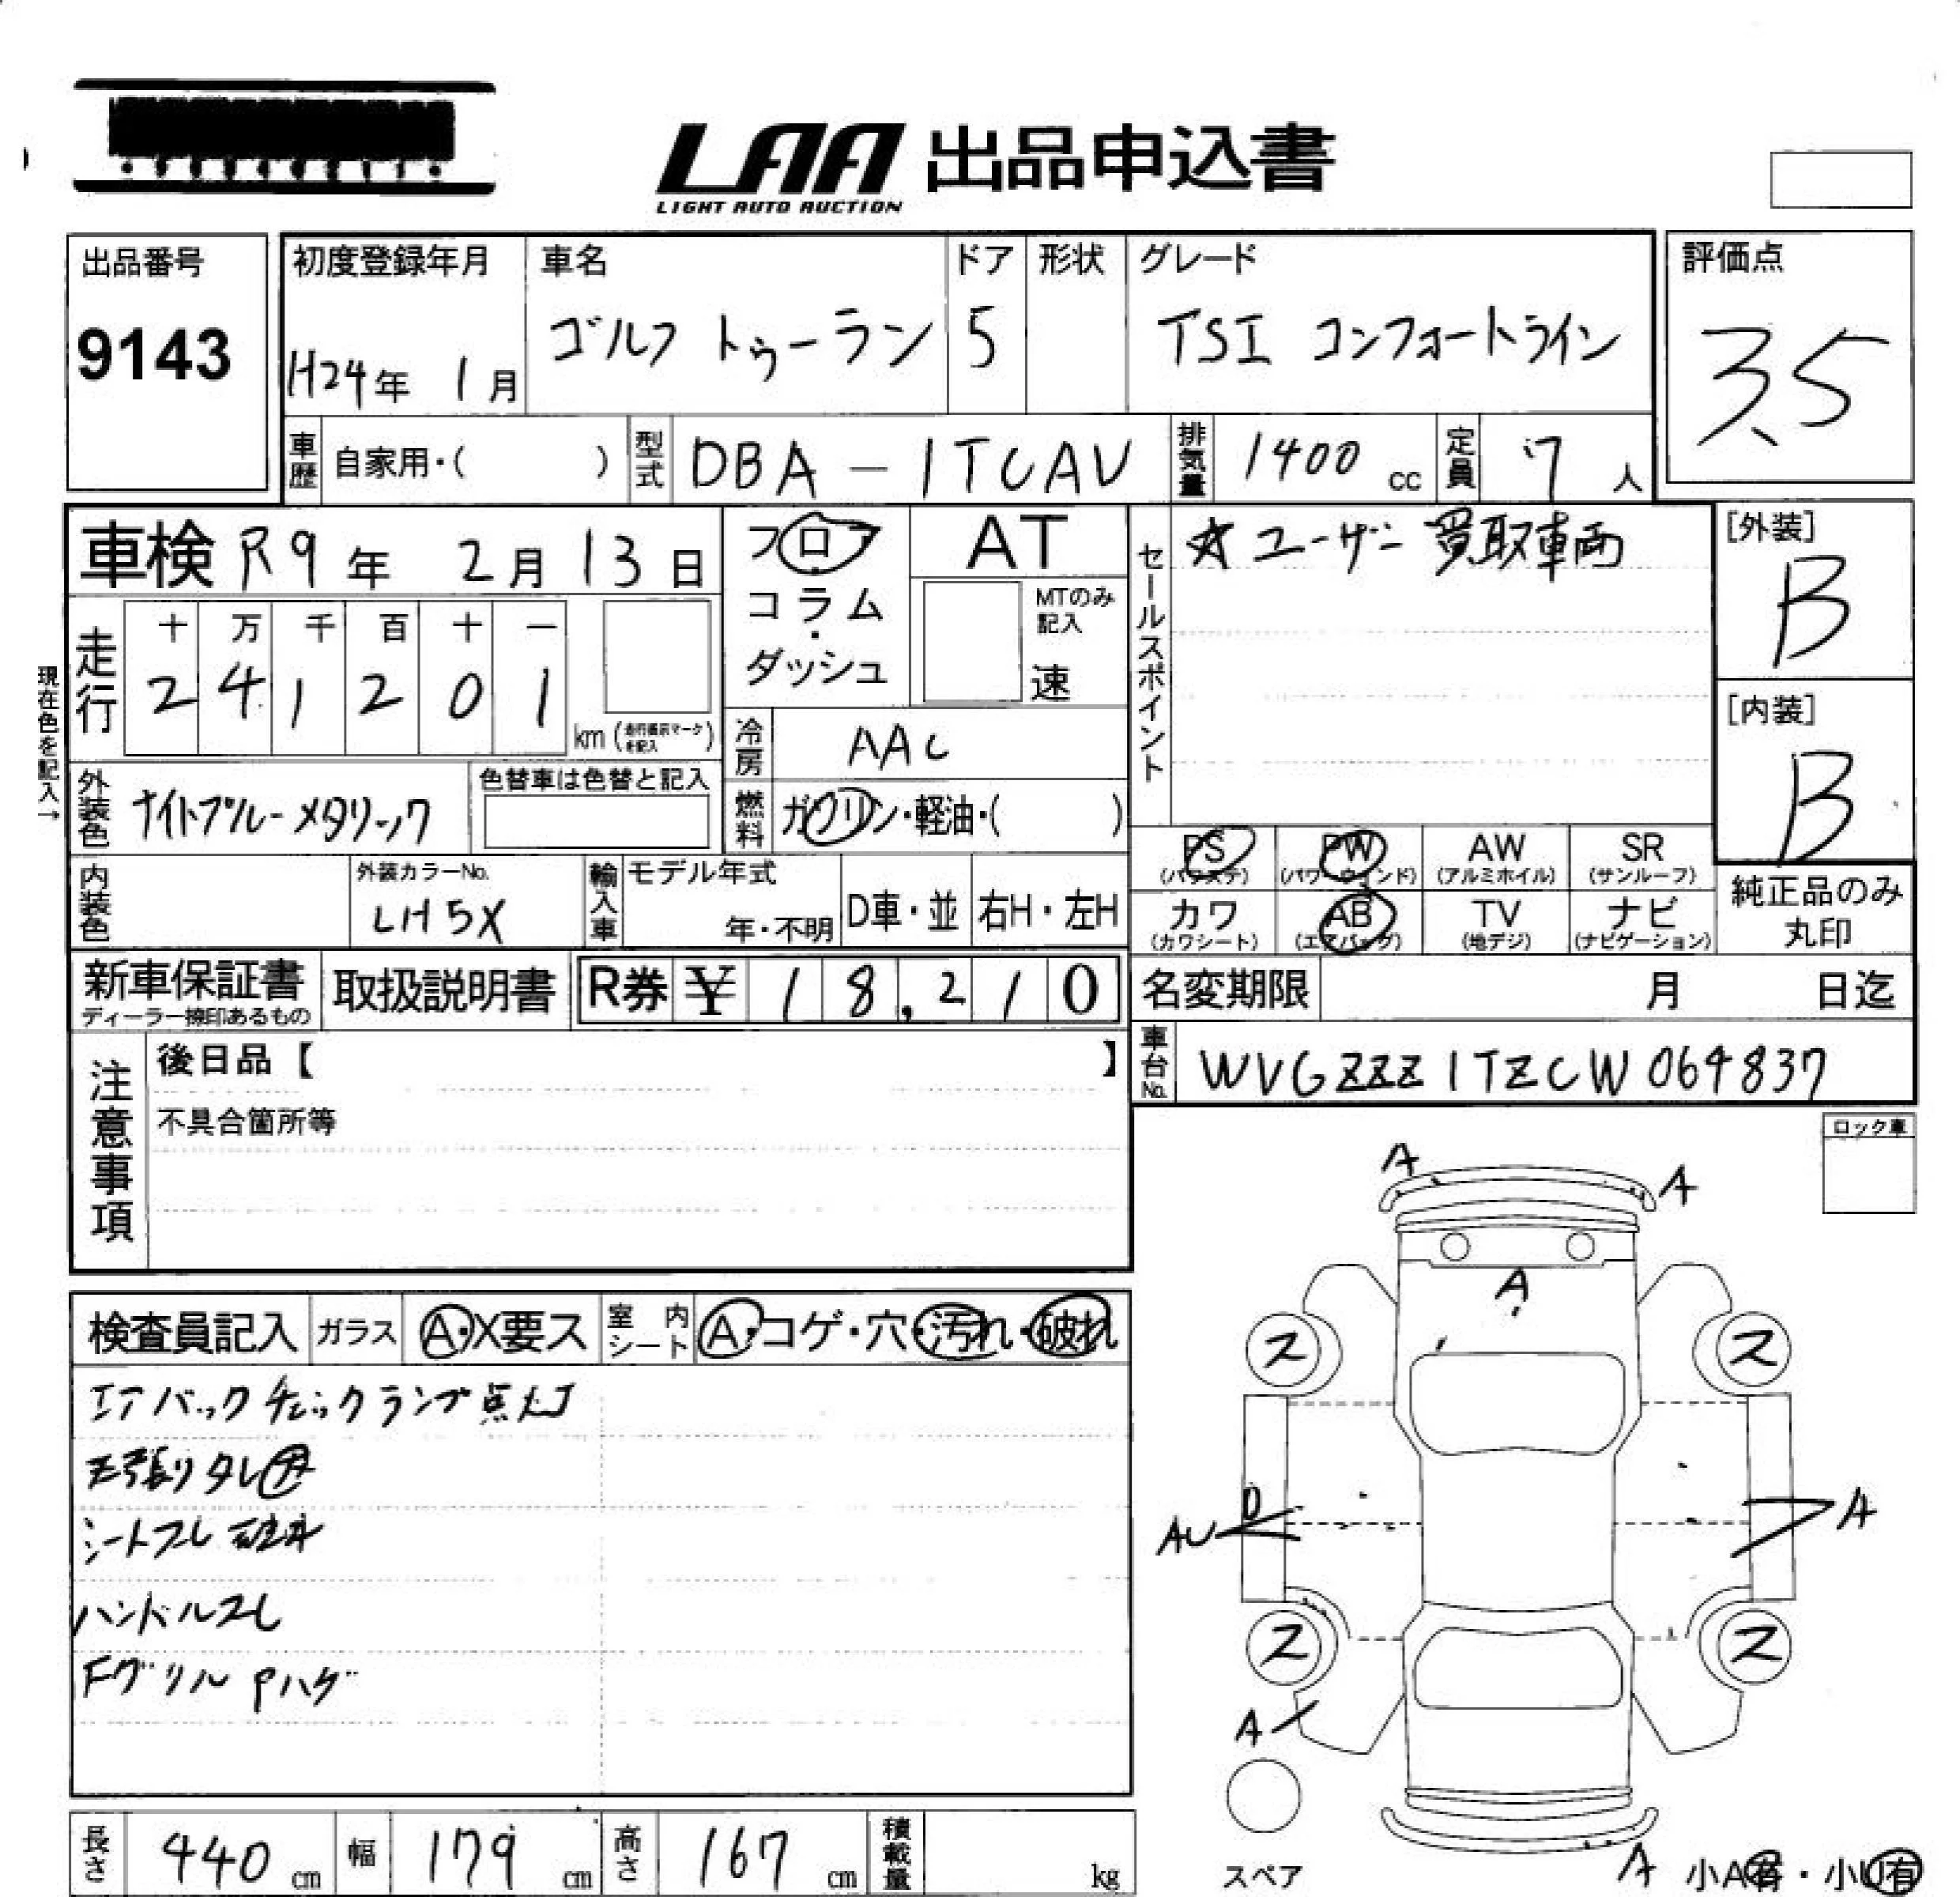 LAA 出品申込書
LIGHT AUTO AUCTION
出品番号
9143
初度登録年月
H24年 1月
車名
ゴルフ トゥーラン
ドア
5
形状
グレード
TSI コンフォートライン
評価点
3.5
車歴 自家用・( )
型式 DBA-1TCAV
排気量 1400 cc
定員 7人
車検 R9年 2月13日
フロア・コラム・ダッシュ
AT
MTのみ記入
速
セールスポイント
☆ユーザー買取車両
[外装]
B
[内装]
B
現在色を記入→
走行
十 万 千 百 十 一
2 4 1 2 0 1 km (走行表示マークを記入)
冷房 AAC
燃料 ガソリン・軽油・( )
外装色 ナイトブルーメタリック
色替車は色替と記入
PS (パワステ)
PW (パワーウィンド)
AW (アルミホイル)
SR (サンルーフ)
カワ (カワシート)
AB (エアバッグ)
TV (地デジ)
ナビ (ナビゲーション)
純正品のみ丸印
内装色
外装カラーNo.
LH5X
輸入車
モデル年式
年・不明
D車・並
右H・左H
新車保証書
ディーラー捺印あるもの
取扱説明書
R券 ¥18,210
名変期限 月 日迄
車台No. WVGZZZ1TZCW064837
注意事項
後日品【 】
不具合箇所等
ロック車
検査員記入
ガラス A・X要ス
室内シート A・コゲ・穴・汚れ・破れ
エアバックチェックランプ点灯
シートスレ
ハンドルスレ
Fグリル Pハゲ
A
A
A
ス
ス
D
AU
A
ス
ス
A
スペア
A
小A有・小U有
長さ 440 cm
幅 179 cm
高さ 167 cm
積載量 kg